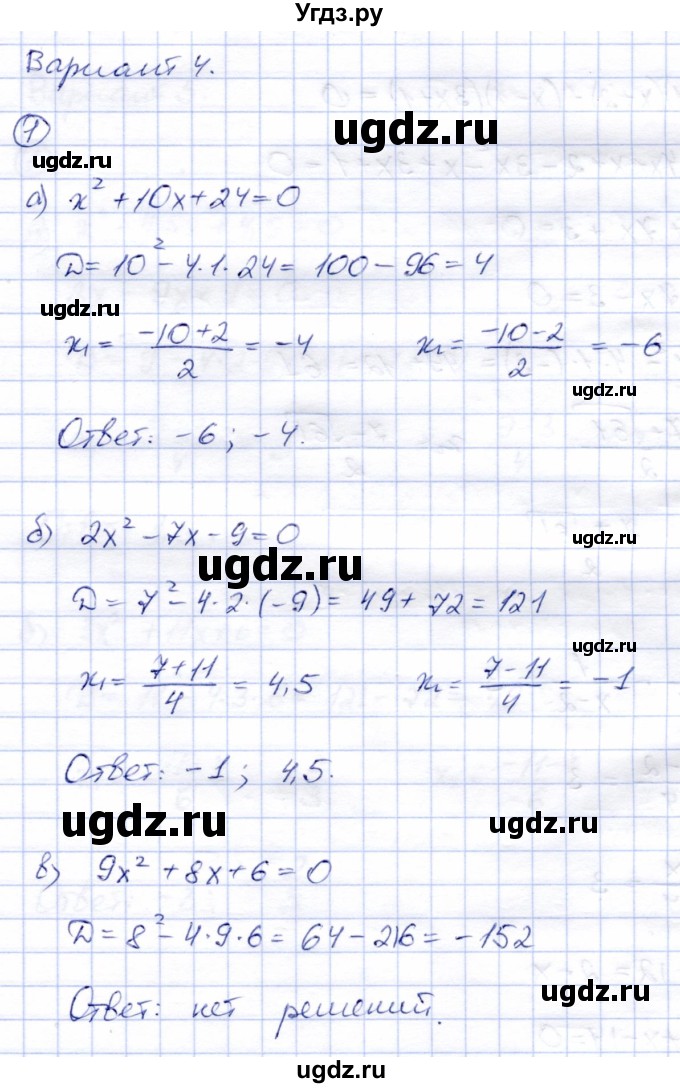 Угдз.ру
Вариант 4.
1
ugdz.ru
ugdz.ru
а) x² + 10x + 24 = 0
D = 10² - 4·1·24 = 100 - 96 = 4
ugdz.ru
x₁ = (-10+2)/2 = -4 x₂ = (-10-2)/2 = -6
ugdz.ru
Ответ: -6; -4.
б) 2x² - 7x - 9 = 0
ugdz.ru
ugdz.ru
D = 7² - 4·2·(-9) = 49 + 72 = 121
ugdz.ru
x₁ = (7+11)/4 = 4,5 x₂ = (7-11)/4 = -1
Ответ: -1; 4,5.
ugdz.ru
ugdz.ru
в) 9x² + 8x + 6 = 0
D = 8² - 4·9·6 = 64 - 216 = -152
ugdz.ru
Ответ: нет решений.
ugdz.ru